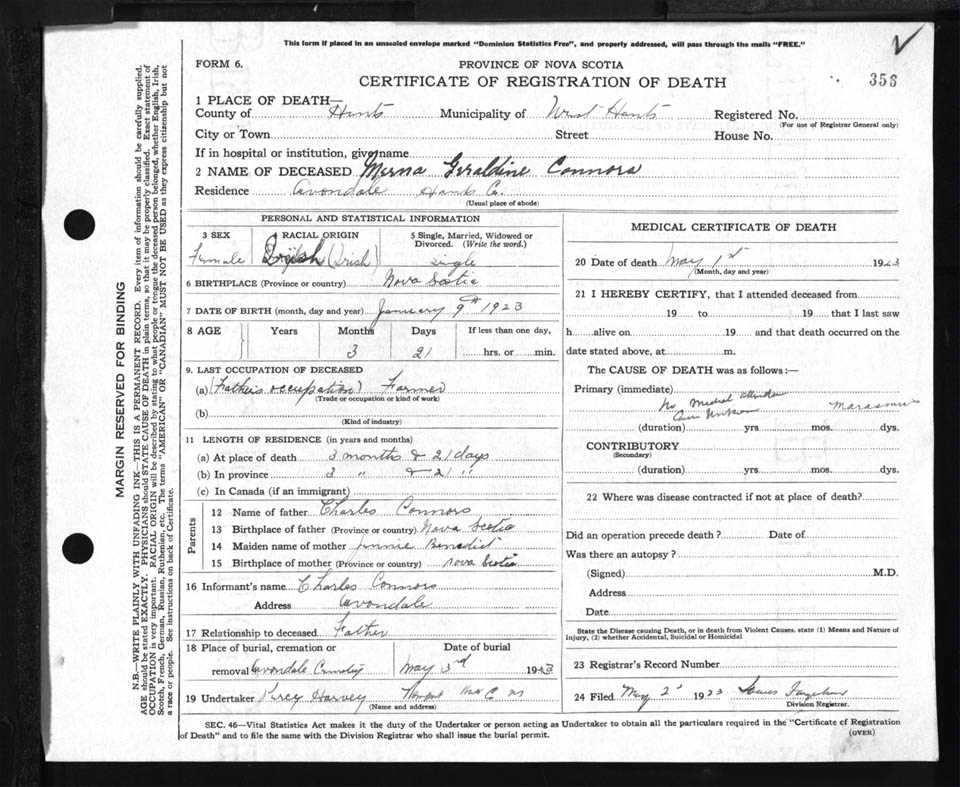 This form if placed in an unsealed envelope marked "Dominion Statistics Free", and properly addressed, will pass through the mails "FREE."
FORM 6.
PROVINCE OF NOVA SCOTIA
CERTIFICATE OF REGISTRATION OF DEATH
356
1 PLACE OF DEATH—
County of Hants Municipality of West Hants Registered No.
(For use of Registrar General only)
City or Town Street House No.
If in hospital or institution, give name
2 NAME OF DECEASED Merna Geraldine Connors
Residence Avondale Hants Co.
(Usual place of abode)
PERSONAL AND STATISTICAL INFORMATION
3 SEX 4 RACIAL ORIGIN 5 Single, Married, Widowed or Divorced. (Write the word.)
Female (Irish) Single
6 BIRTHPLACE (Province or country) Nova Scotia
7 DATE OF BIRTH (month, day and year) January 9th 1923
8 AGE Years Months Days If less than one day,
3 21 hrs. or min.
9. LAST OCCUPATION OF DECEASED
(a) (Father's occupation) Farmer
(Trade or occupation or kind of work)
(b)
(Kind of industry)
11 LENGTH OF RESIDENCE (in years and months)
(a) At place of death 3 months & 21 days
(b) In province 3 " & 21 "
(c) In Canada (if an immigrant)
Parents
12 Name of father Charles Connors
13 Birthplace of father (Province or country) Nova Scotia
14 Maiden name of mother Jennie Benedict
15 Birthplace of mother (Province or country) Nova Scotia
16 Informant's name Charles Connors
Address Avondale
17 Relationship to deceased Father
18 Place of burial, cremation or removal Date of burial
Avondale Cemetery May 3rd 1923
19 Undertaker Percy Harvey
(Name and address)
MEDICAL CERTIFICATE OF DEATH
20 Date of death May 1st 1923
(Month, day and year)
21 I HEREBY CERTIFY, that I attended deceased from
19 to 19 that I last saw
h alive on 19 and that death occurred on the
date stated above, at m.
The CAUSE OF DEATH was as follows:—
Primary (immediate)
No Medical Attendance Marasmus
(duration) yrs. mos. dys.
CONTRIBUTORY
(Secondary)
(duration) yrs. mos. dys.
22 Where was disease contracted if not at place of death?
Did an operation precede death? Date of
Was there an autopsy?
(Signed) M.D.
Address
Date
State the Disease causing Death, or in death from Violent Causes, state (1) Means and Nature of Injury, (2) whether Accidental, Suicidal or Homicidal
23 Registrar's Record Number
24 Filed May 2 1923
Division Registrar.
SEC. 46—Vital Statistics Act makes it the duty of the Undertaker or person acting as Undertaker to obtain all the particulars required in the "Certificate of Registration
of Death" and to file the same with the Division Registrar who shall issue the burial permit.
(OVER)
MARGIN RESERVED FOR BINDING
N.B.—WRITE PLAINLY WITH UNFADING INK—THIS IS A PERMANENT RECORD. Every item of information should be carefully supplied.
AGE should be stated EXACTLY. PHYSICIANS should STATE CAUSE OF DEATH in plain terms, so that it may be properly classified. Exact statement of
OCCUPATION is very important. RACIAL ORIGIN will be described by stating to what people or tongue the deceased person belonged, whether English, Irish,
Scotch, French, German, Russian, Ruthenian, etc. The terms "AMERICAN" OR "CANADIAN" MUST NOT BE USED as they express citizenship but not
a race or people. See instructions on back of Certificate.